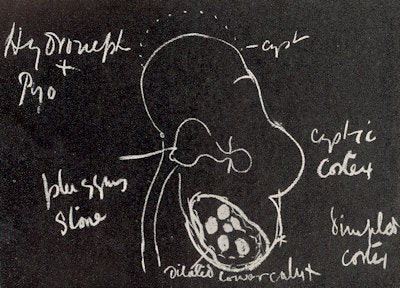 Hydroneph
+
Pyo
cyst
cystic
cortex
plugging
stone
dimpled
cortex
Dilated lower calyx